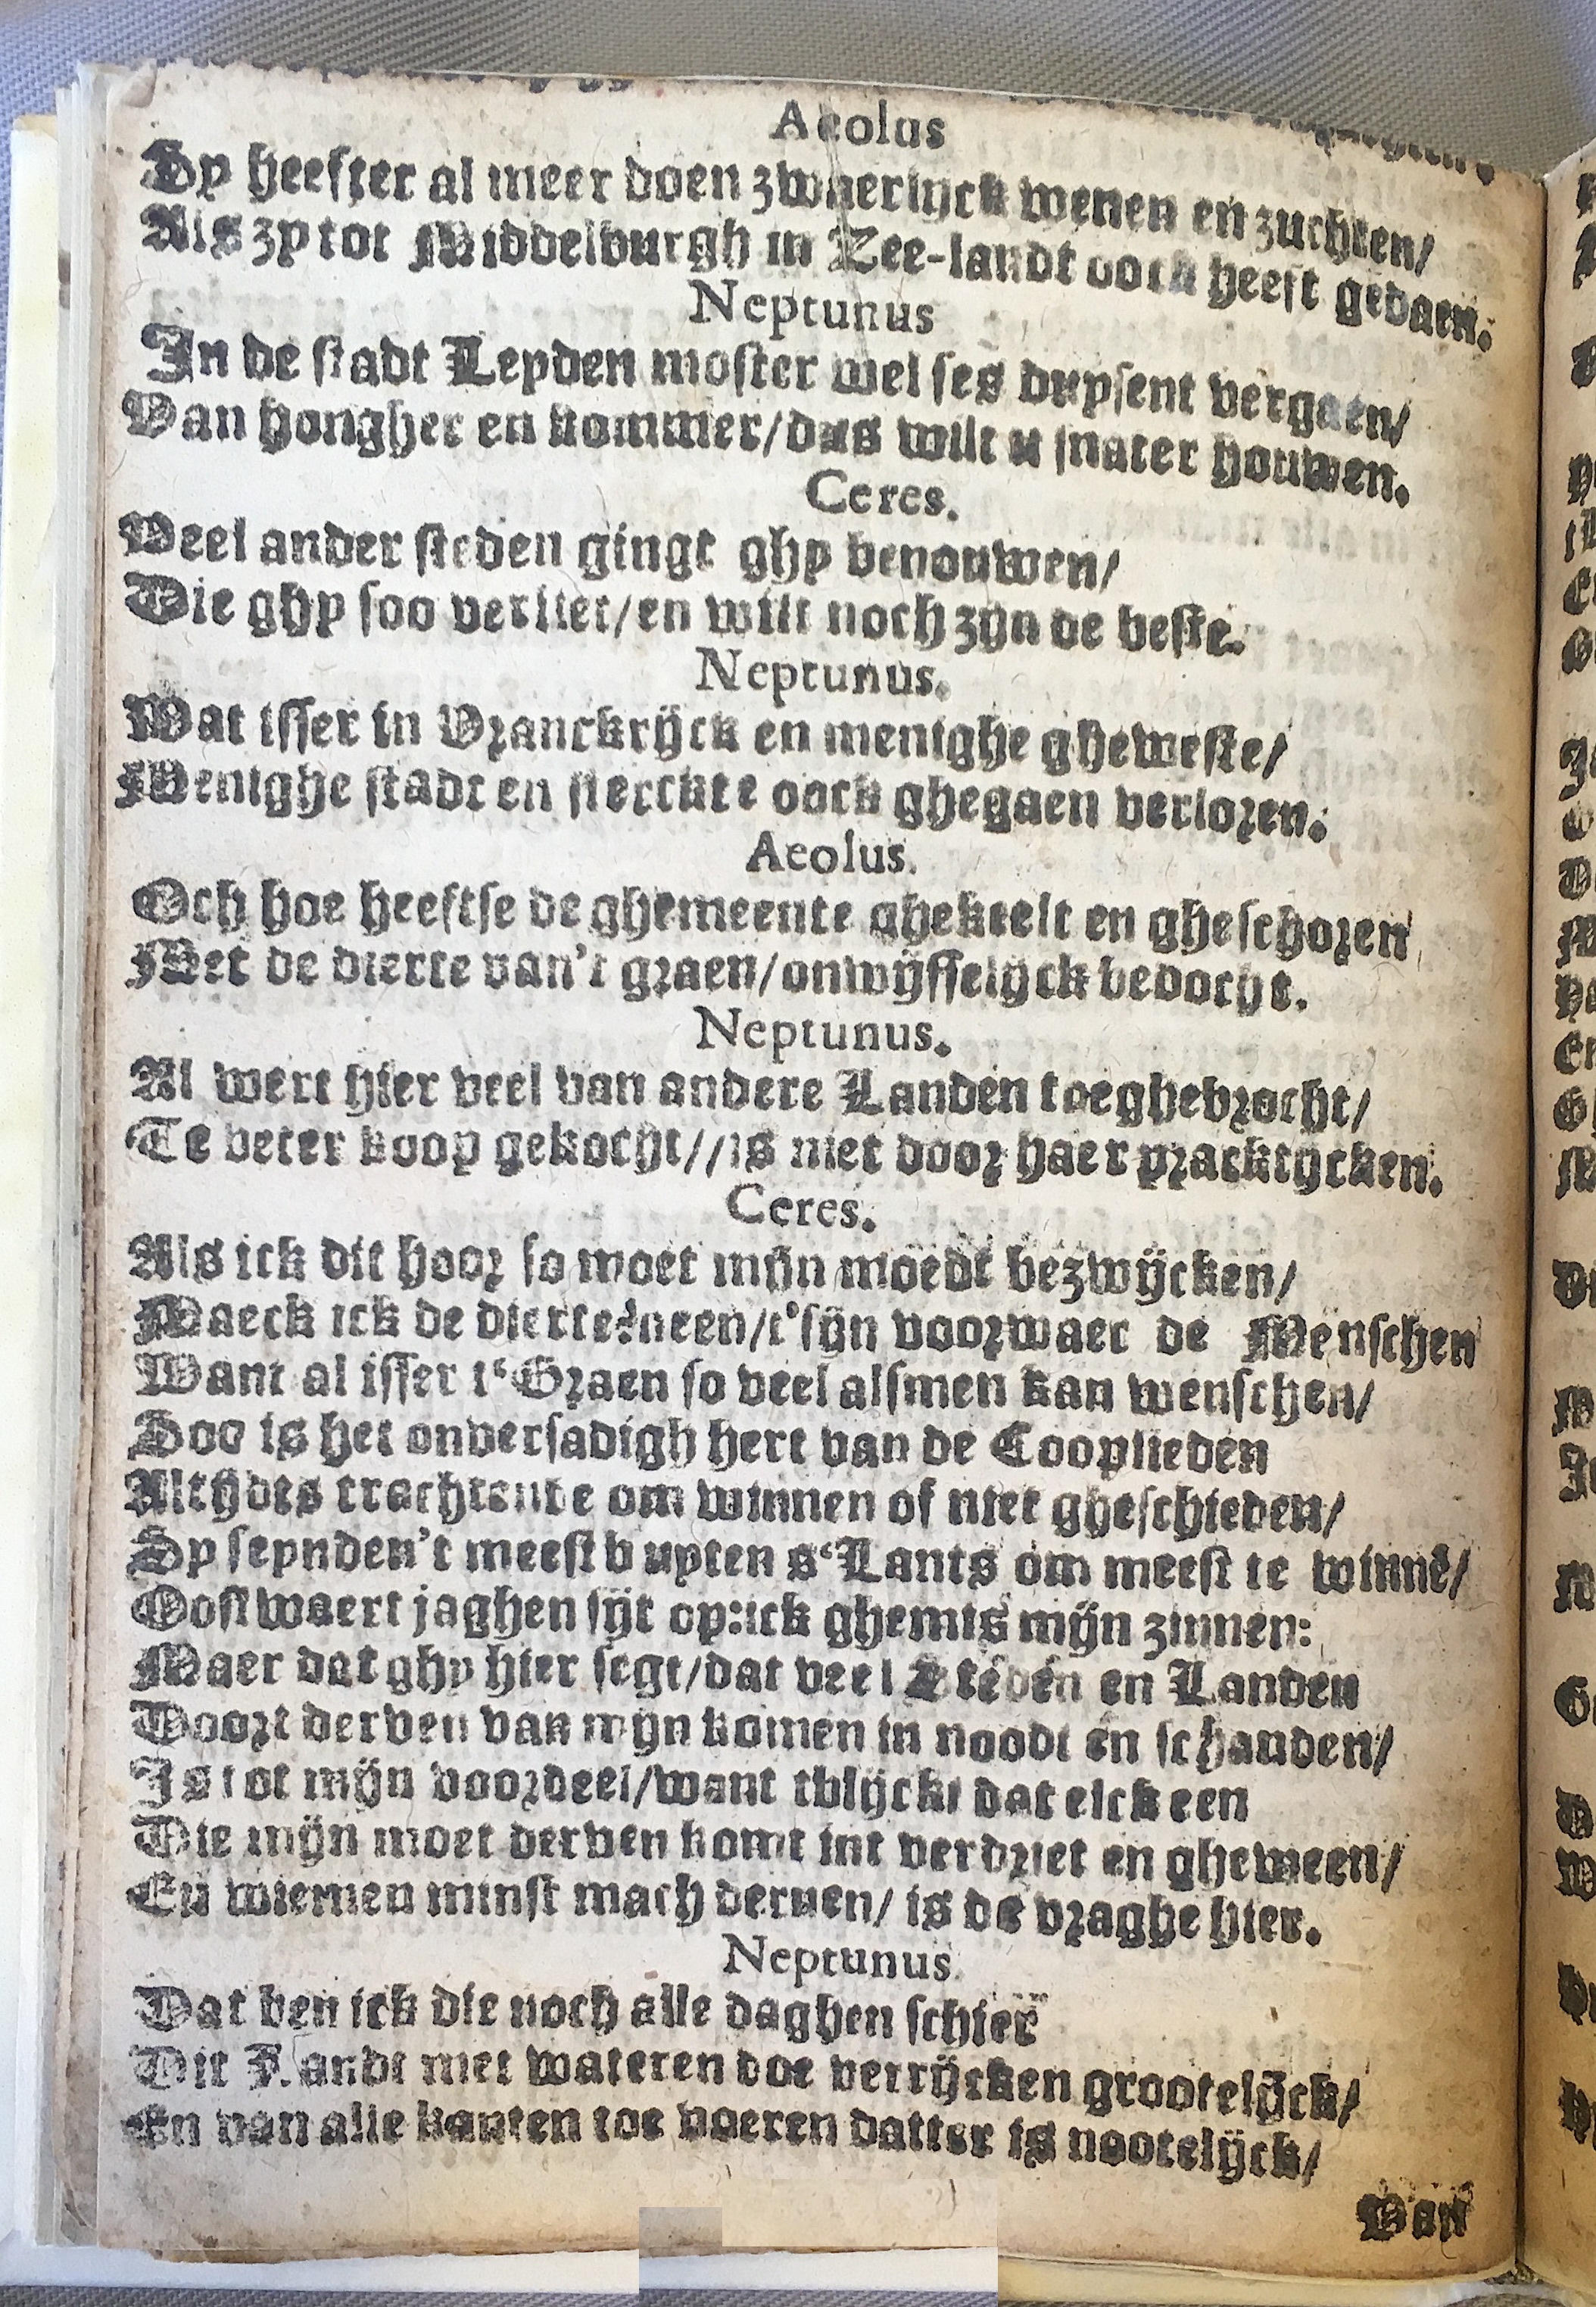 Aeolus
Sy heefter al meer doen zwaerlijck wenen en zuchten/
Als zy tot Middelburgh in Zee-landt oock heeft gedaen.
Neptunus
In de stadt Leyden moster wel ses duysent vergaen/
Van hongher en kommer/dus wilt u snater houwen.
Ceres.
Veel ander steden gingt ghy benouwen/
Die ghy soo verliet/en wilt noch zijn de beste.
Neptunus.
Wat isser in Vranckrijck en menighe gheweste/
Menighe stadt en sterckte oock ghegaen verloren.
Aeolus.
Och hoe heeftse de ghemeente ghekkelt en gheschoren
Met de dierte van't graen/onwijsselijck bedocht.
Neptunus.
Al wert hier veel van andere Landen toeghebrocht/
Te beter koop gekocht//is niet door haer pracktijcken.
Ceres.
Als ick dit hoor so moet mijn moedt bezwijcken/
Maeck ick de dierte?neen/t'sijn voorwaer de Menschen
Want al isser t'Graen so veel alsmen kan wenschen/
Soo is het onversadigh hert van de Cooplieden
Altijdts trachtende om winnen of niet gheschieden/
Sy seynden't meest buyten s'Lants om meest te winnē/
Oostwaert jaghen sijt op:ick ghemis mijn zinnen:
Maer dat ghy hier segt/dat veel Steden en Landen
Doort derven van mijn komen in noodt en schanden/
Is tot mijn voordeel/want tblijckt dat elck een
Die mijn moet derven komt int verdriet en gheween/
En wiemen minst mach derven/ is de vraghe hier.
Neptunus.
Dat ben ick die noch alle daghen schier
Dit Landt met wateren doe verrijcken grootelijck/
En van alle kanten toe voeren datter is nootelijck/
Van